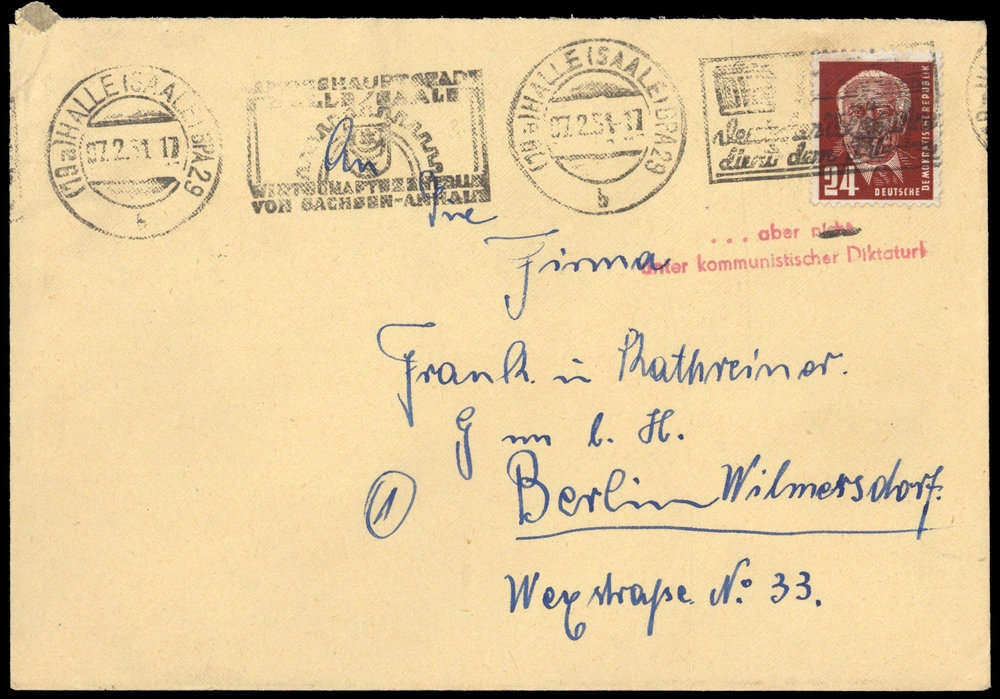 (19a) HALLE (SAALE) BPA 29
07.2.51.17
b
HALLE / SAALE
WIRTSCHAFTSZENTRUM
VON SACHSEN-ANHALT
(19a) HALLE (SAALE) BPA 29
07.2.51.17
b
dient dem
24
DEUTSCHE
DEMOKRATISCHE REPUBLIK
... aber nicht
unter kommunistischer Diktatur!
An
Die
Firma
Frank u Kathreiner.
G m b. H.
Berlin Wilmersdorf.
1
Wexstraße No 33.